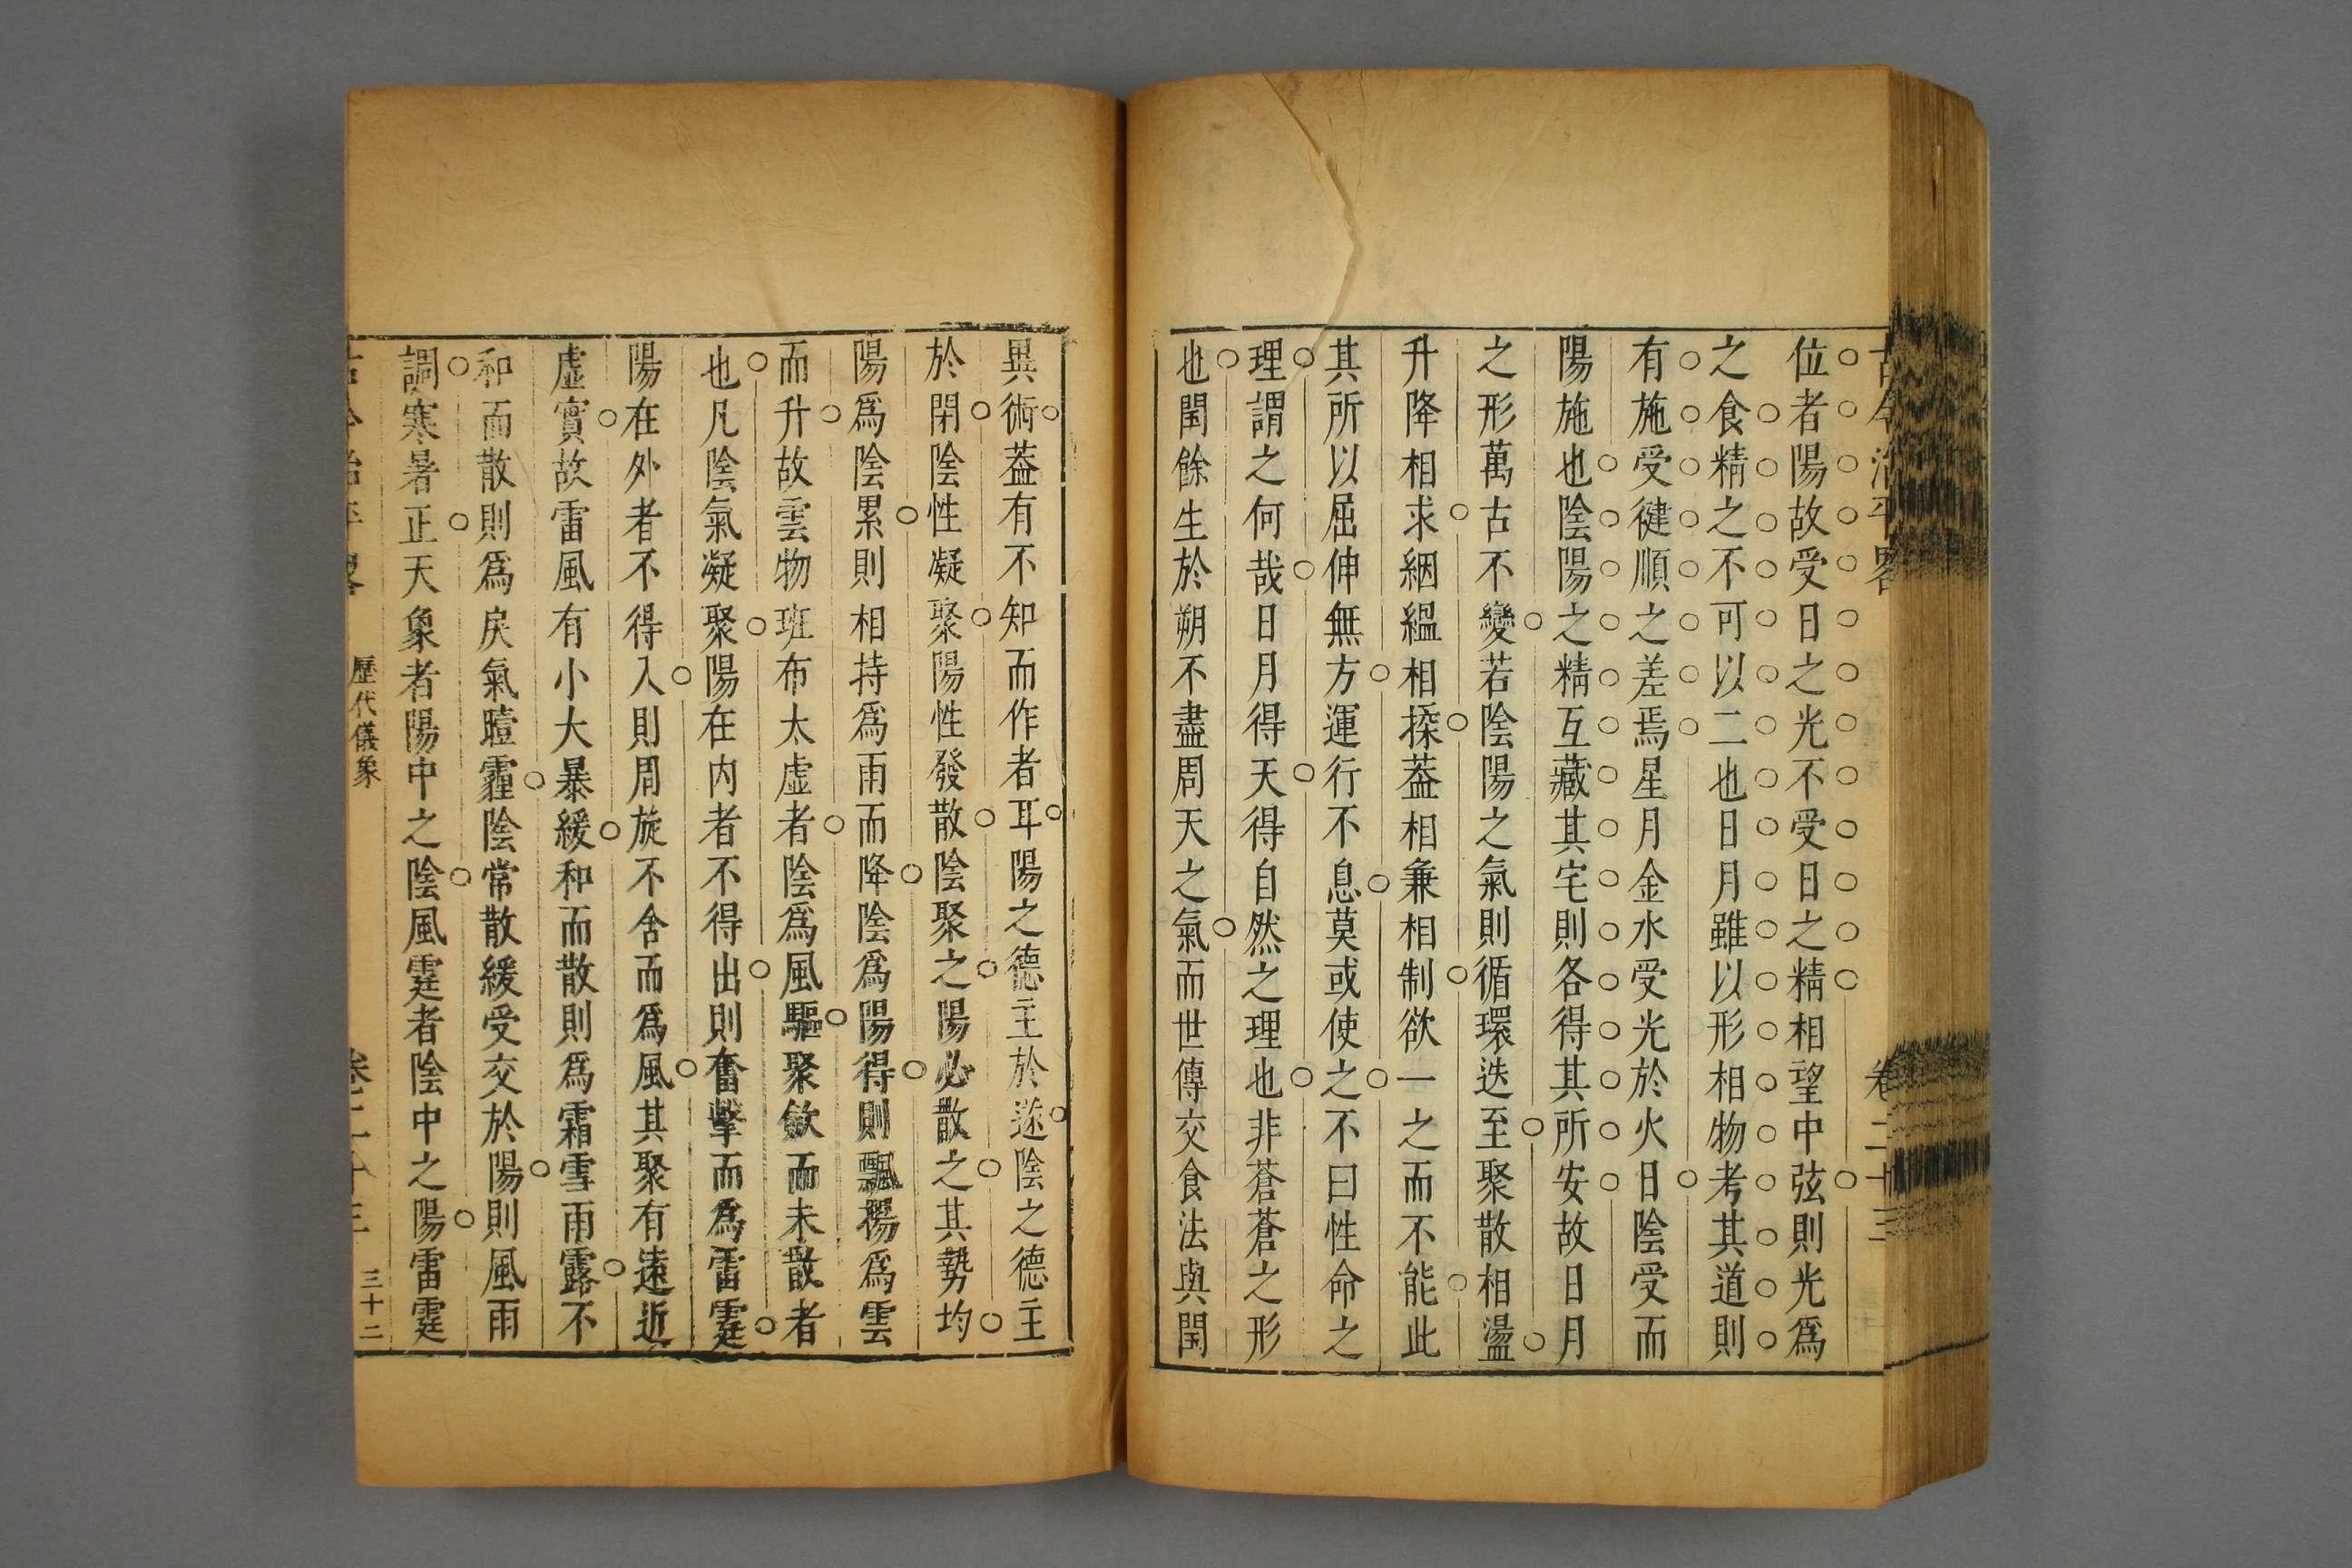 古今治平畧 卷二十三
位者陽故受日之光不受日之精相望中弦則光爲
之食精之不可以二也日月雖以形相物考其道則
有施受健順之差焉星月金水受光於火日陰受而
陽施也陰陽之精互藏其宅則各得其所安故日月
之形萬古不變若陰陽之氣則循環迭至聚散相盪
升降相求絪縕相揉葢相兼相制欲一之而不能此
其所以屈伸無方運行不息莫或使之不曰性命之
理謂之何哉日月得天得自然之理也非蒼蒼之形
也閏餘生於朔不盡周天之氣而世傳交食法與閏
異術葢有不知而作者耳陽之德主於遂陰之德主
於閉陰性凝聚陽性發散陰聚之陽必散之其勢均
陽爲陰累則相持爲雨而降陰爲陽得則飄揚爲雲
而升故雲物班布太虛者陰爲風驅聚斂而未散者
也凡陰氣凝聚陽在内者不得出則奮擊而爲雷霆
陽在外者不得入則周旋不舍而爲風其聚有遠近
虛實故雷風有小大暴緩和而散則爲霜雪雨露不
和而散則爲戾氣曀霾陰常散緩受交於陽則風雨
調寒暑正天象者陽中之陰風霆者陰中之陽雷霆
古今治平畧 歷代儀象 卷二十三 三十二